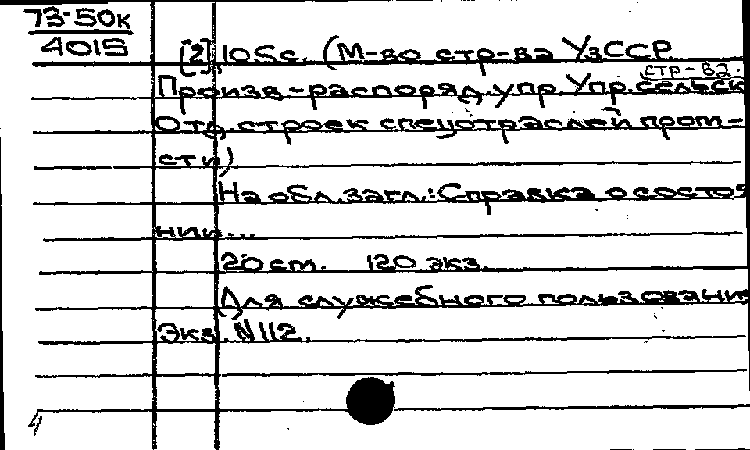 73-50к
4015
[2], 105с. (М-во стр-ва УзССР.
стр-ва.
Произв.-распоряд. упр. Упр. сельск
Отд. строек спецотраслей пром-
сти)
На обл. загл.: Справка о состоя
нии...
20 cm. 120 экз.
Для служебного пользования
Экз. N 112.